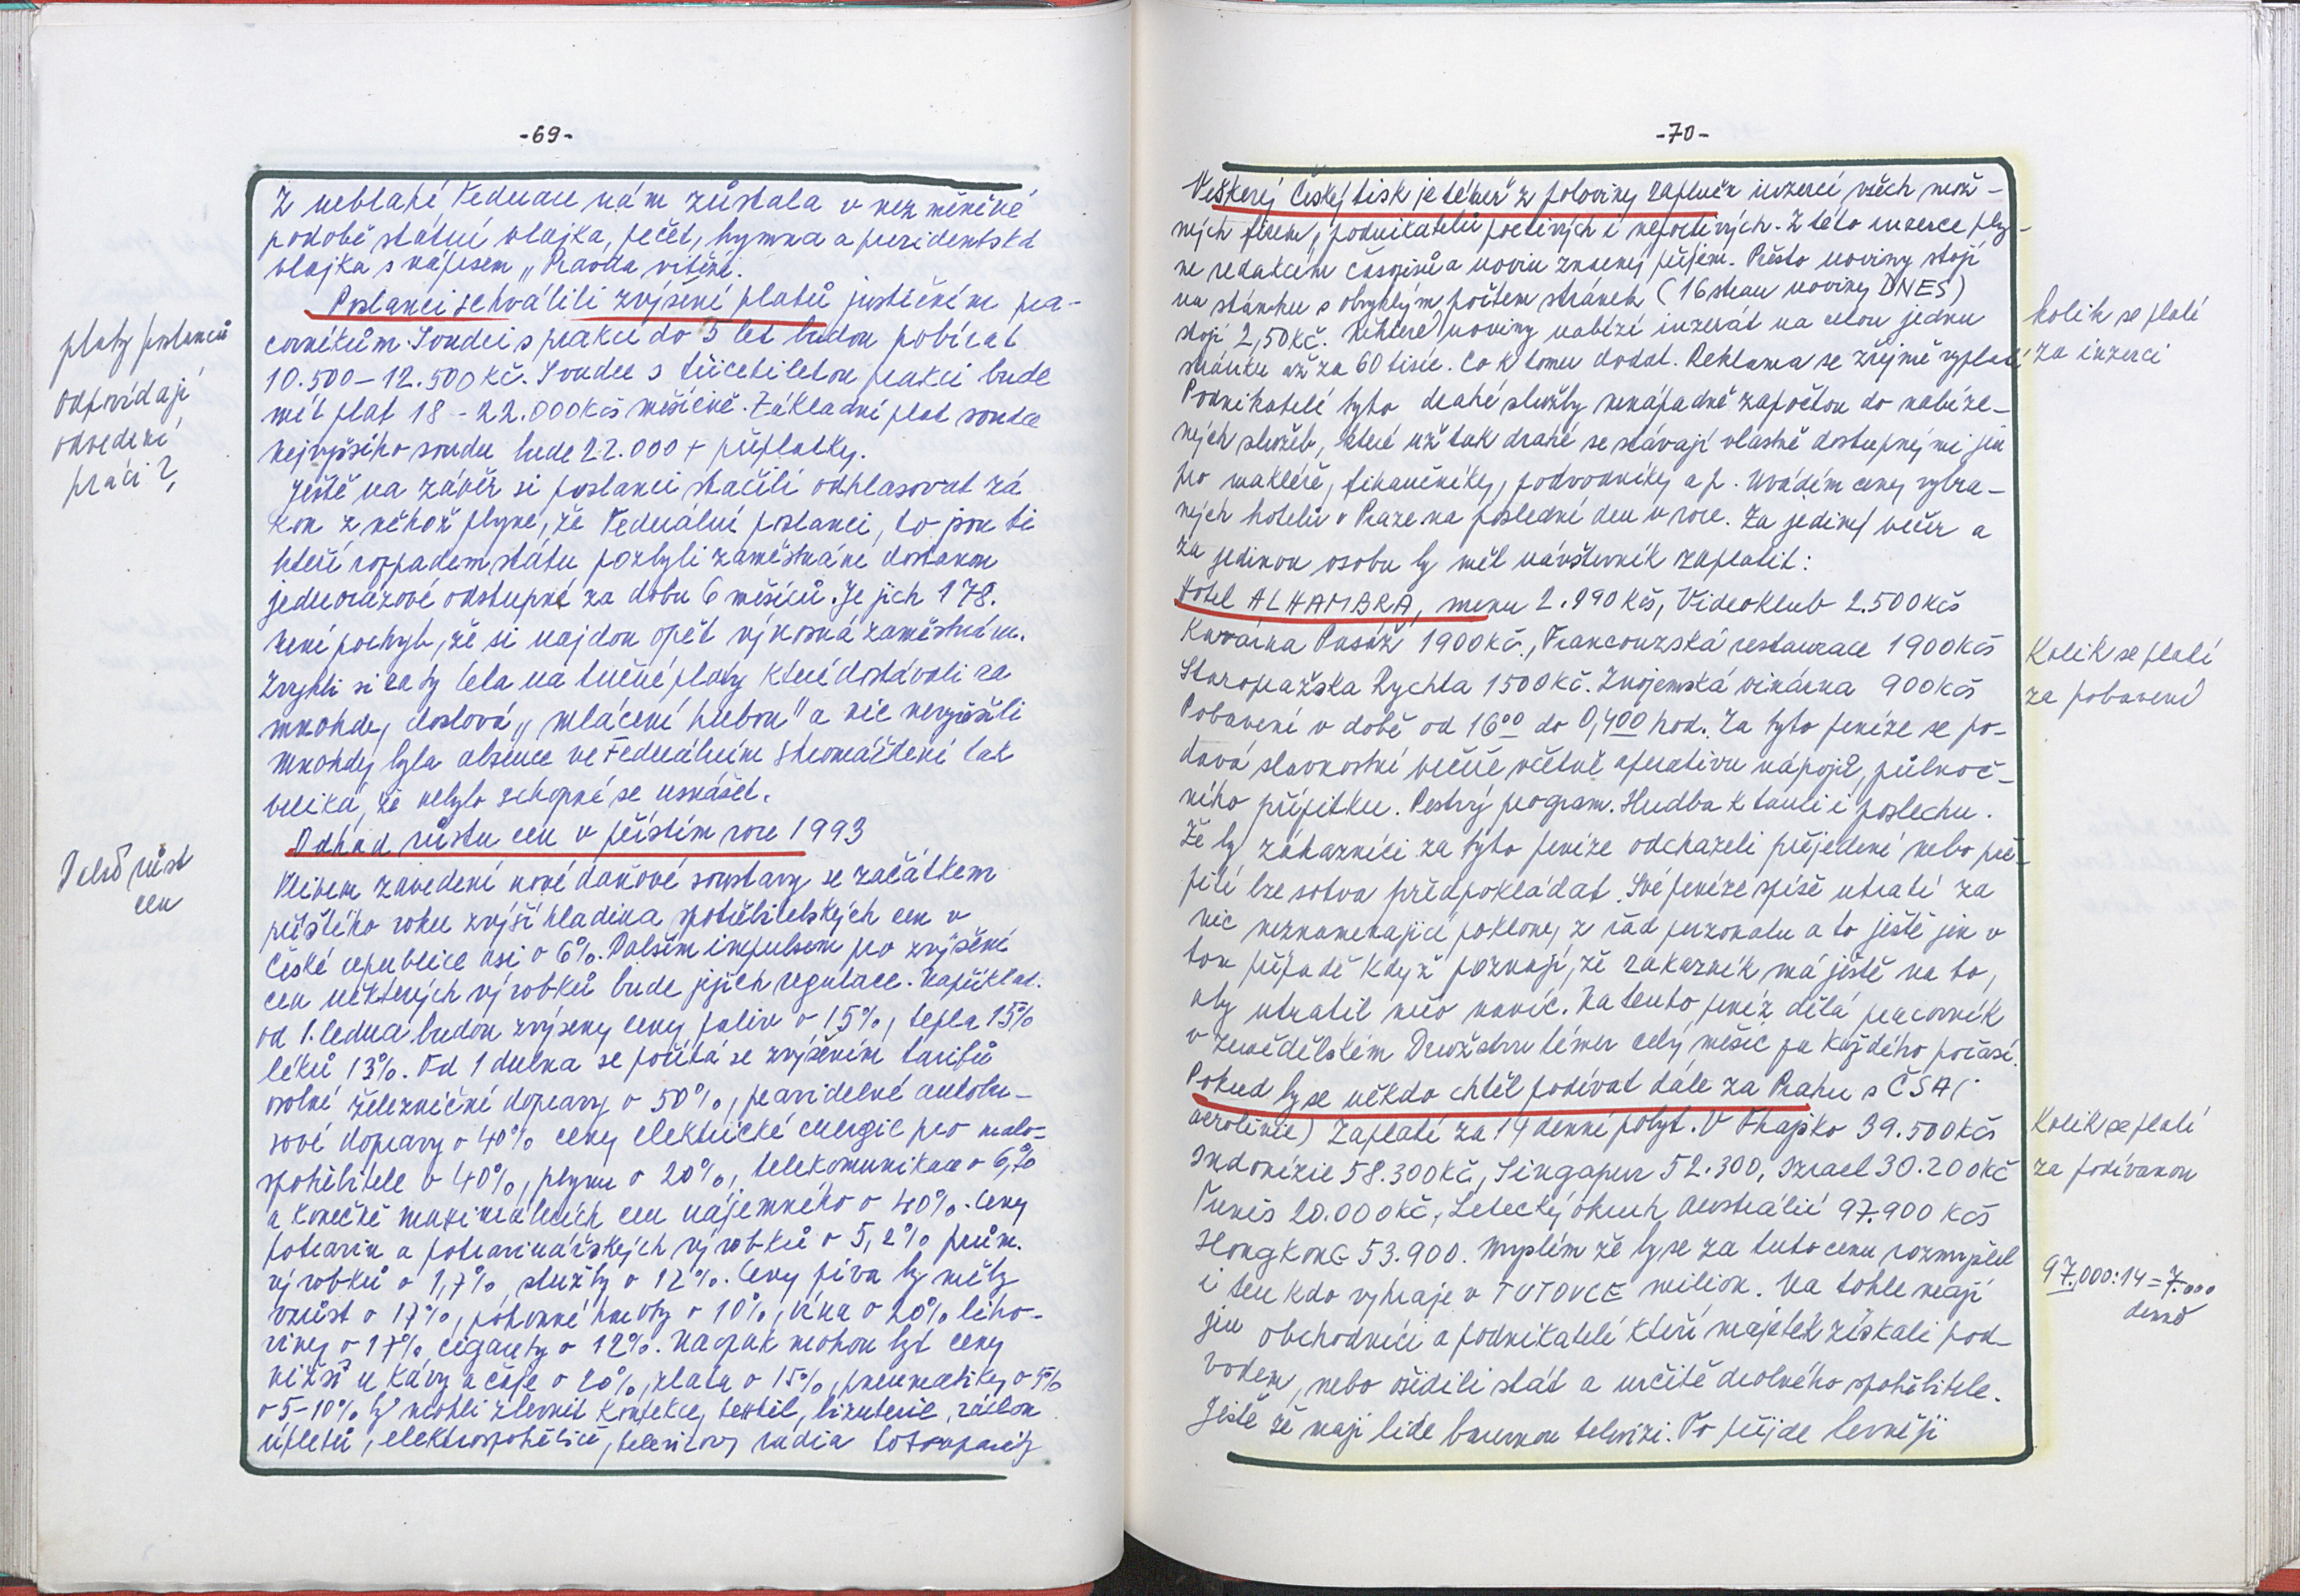 -69-
Z neblahé Federace nám zůstala v nezměněné
podobě státní vlajka, pečeť, hymna a presidentská
vlajka s nápisem „Pravda vítězí.
Poslanci schválili zvýšení platů justičním pra-
covníkům. Soudci s praxí do 5 let budou pobírat
10.500 – 12.500 Kč. Soudce s třicetiletou praxí bude
mít plat 18 – 22.000 Kčs měsíčně. Základní plat soudce
nejvyššího soudu bude 22.000 + příplatky.
platy poslanců
odpovídají
odvedené
práci?
Ještě na závěr si poslanci stačili odhlasovat zá
kon z něhož plyne, že Federální poslanci, to jsou ti
kteří rozpadem státu pozbyli zaměstnání dostanou
jednorázové odstupné za dobu 6 měsíců. Je jich 178.
Není pochyb, že si najdou opět výnosná zaměstnání.
Zvykli si za ty léta na tučné platy které dostávali za
mnohdy doslova „mlácení hubou" a nic nevyřešili
Mnohdy byla absence ve Federálním Shromáždění tak
veliká, že nebylo schopné se usnášet.
Odhad růstu cen v příštím roce 1993
Další růst
cen
Vlivem zavedení nové daňové soustavy se začátkem
příštího roku zvýší hladina spotřebitelských cen v
České republice asi o 6%. Dalším impulsem pro zvýšení
cen některých výrobků bude jejich regulace. Například.
od 1. ledna budou zvýšeny ceny paliv o 15%, tepla 15%
léků 13%. Od 1 dubna se počítá se zvýšením tarifů
osobní železniční dopravy o 50%, pravidelné autobu-
sové dopravy o 40% ceny elektrické energie pro malo-
spotřebitele o 40%, plynu o 20%, telekomunikace o 6,%
a konečně maximálních cen nájemného o 40%. Ceny
potravin a potravinářských výrobků o 5,2% prům.
výrobků o 1,7%, služby o 12%. Ceny piva by měly
vzrůst o 17%, pohonné hmoty o 10%, vína o 20% liho-
viny o 17% cigarety o 12%. Naopak mohou být ceny
nižší u kávy a čaje o 20%, zlata o 15%, pneumatiky o 5%
o 5–10% by mohli zlevnit konfekce, textil, bižuterie, záclon
úpletů, elektrospotřebičů, televizory radia fotoaparáty
-70-
Veškerý Český tisk je téměř z poloviny zaplněn inzercí všech mož-
ných firem, podnikatelů poctivých i nepoctivých. Z této inzerce ply-
ne redakcím časopisů a novin znacný příjem. Přesto noviny stojí
na stánku s obvyklým počtem stránek (16 stran noviny DNES)
stojí 2,50 Kč. Některé noviny nabízí inzerát na celou jednu
stránku až za 60 tisíc. Co k tomu dodat. Reklama se zřejmě vyplatí
Kolik se platí
za inzerci
Podnikatelé tyto drahé služby nenápadně započtou do nabíze-
ných služeb, které už tak drahé se stávají vlastně dostupnými jen
pro makléře, finančníky, podvodníky a p. Uvádím ceny vybra-
ných hotelů v Praze na poslední den v roce. Za jediný večer a
za jedinou osobu by měl návštěvník zaplatit:
Hotel ALHAMBRA, menu 2.990 Kčs, Videoklub 2.500 Kčs
Kavárna Pasáž 1900 Kč., Francouzská restaurace 1900 Kčs
Staropražska Rychta 1500 Kč. Znojemská vinárna 900 Kčs
Kolik se platí
za pobavení
Pobavení v době od 16⁰⁰ do 0,4⁰⁰ hod. Za tyto peníze se po-
dává slavnostní večeře včetně aperativu nápojů, půlnoč-
ního přípitku. Pestrý program. Hudba k tanci i poslechu.
Že by zákazníci za tyto peníze odcházeli přejedení nebo pře-
pití lze sotva předpokládat. Své peníze spíše utratí za
nic neznamenající poklony z řad personalu a to ještě jen v
tom případě když poznají, že zákazník má ještě na to,
aby utratil něco navíc. Na tento peníz dělá pracovník
v Zemědělském Družstvu téměr celý měsíc za každého počasí.
Pokud by se někdo chtěl podívat dále za Prahu s ČSA (
aerolinie) Zaplatí za 14 denní pobyt. V Thajsko 39.500 Kčs
Indonézie 58.300 Kč, Singapur 52.300, Izrael 30.200 Kč
Kolik se platí
za podívanou
Tunis 20.000 Kč, Letecký okruh Austrálií 97.900 Kčs
HongKonG 53.900. Myslím že by se za tuto cenu rozmyslel
i ten kdo vyhraje v TUTOVCE milion. Na tohle mají
97.000:14=7.000
denně
jen obchodníci a podnikatelé kteří majetek získali pod-
vodem, nebo ošidili stát a určitě drobného spotřebitele.
Ještě že mají lidé barevnou televizi. To přijde levněji